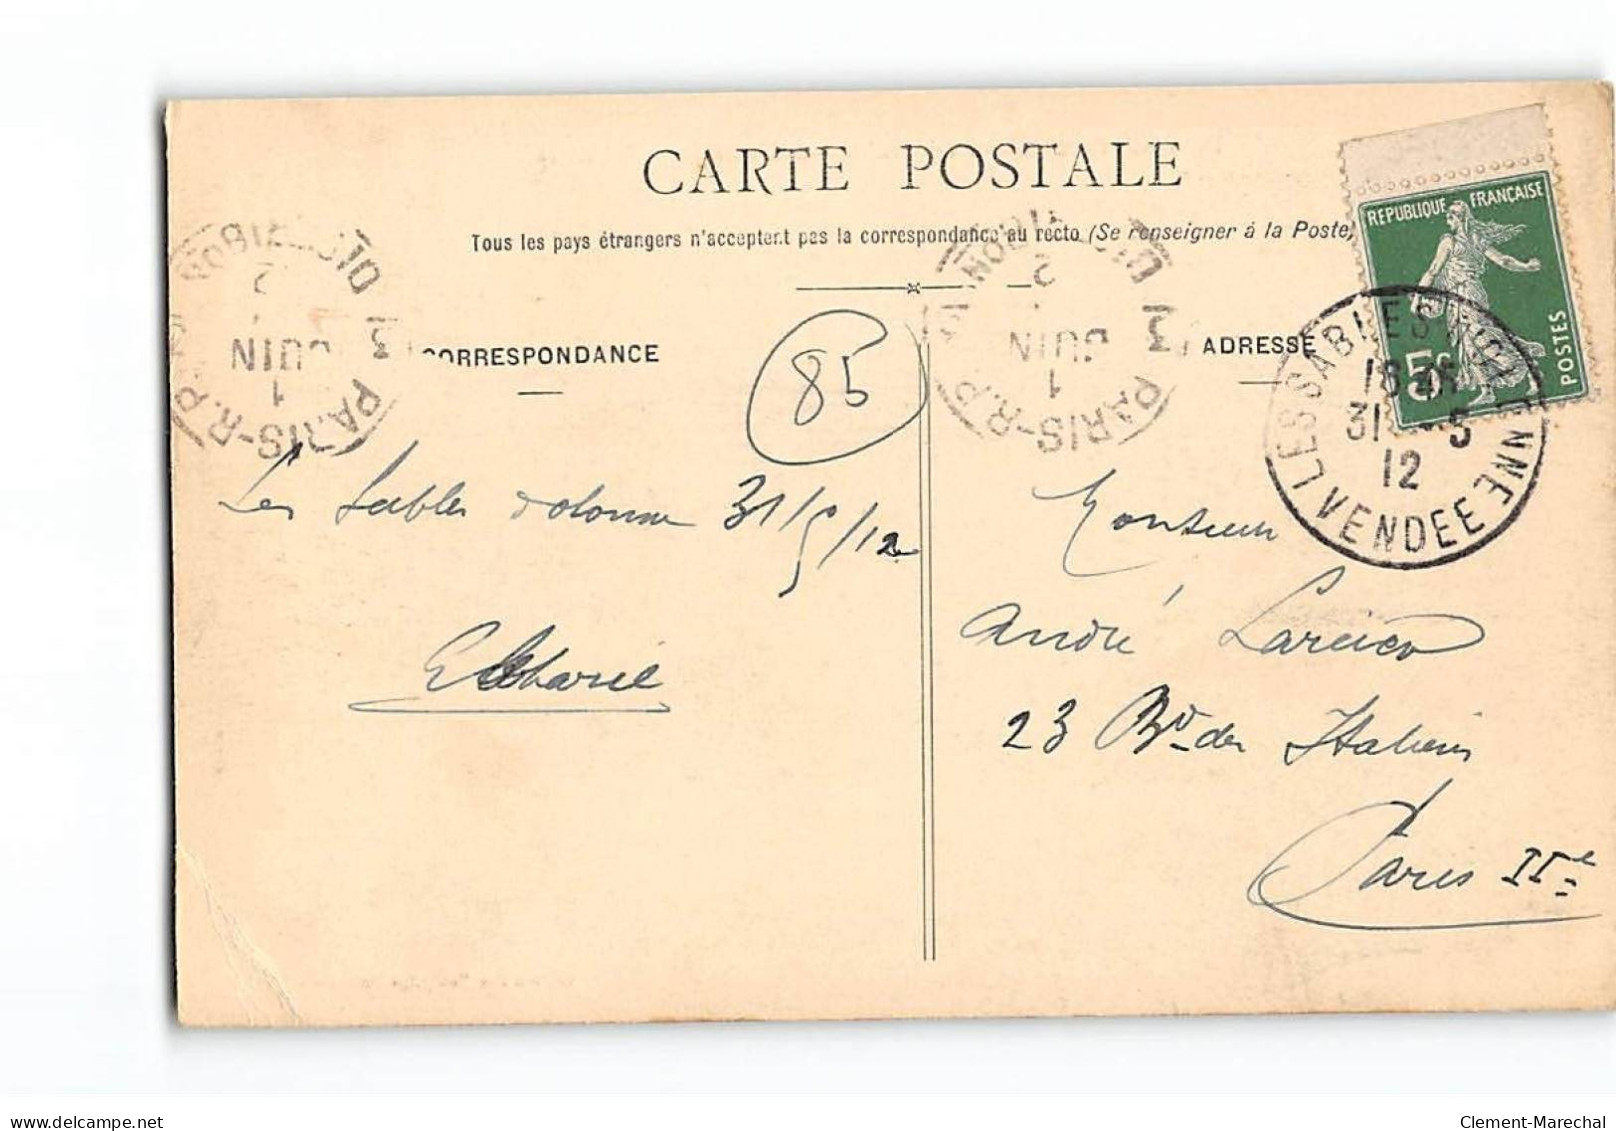 CARTE POSTALE
Tous les pays étrangers n'acceptent pas la correspondance au recto (Se renseigner à la Poste)
REPUBLIQUE FRANÇAISE
5c
POSTES
CORRESPONDANCE
ADRESSE
85
PARIS-R.P.
JUIN
1
PARIS-R.P.
JUIN
1
LES SABLES
18
31 5
12
VENDEE
Les Sables d'olonne 31/5/12
Monsieur
André
23 Bd des Italiens
Paris IIe
delcampe.net
Clement-Marechal